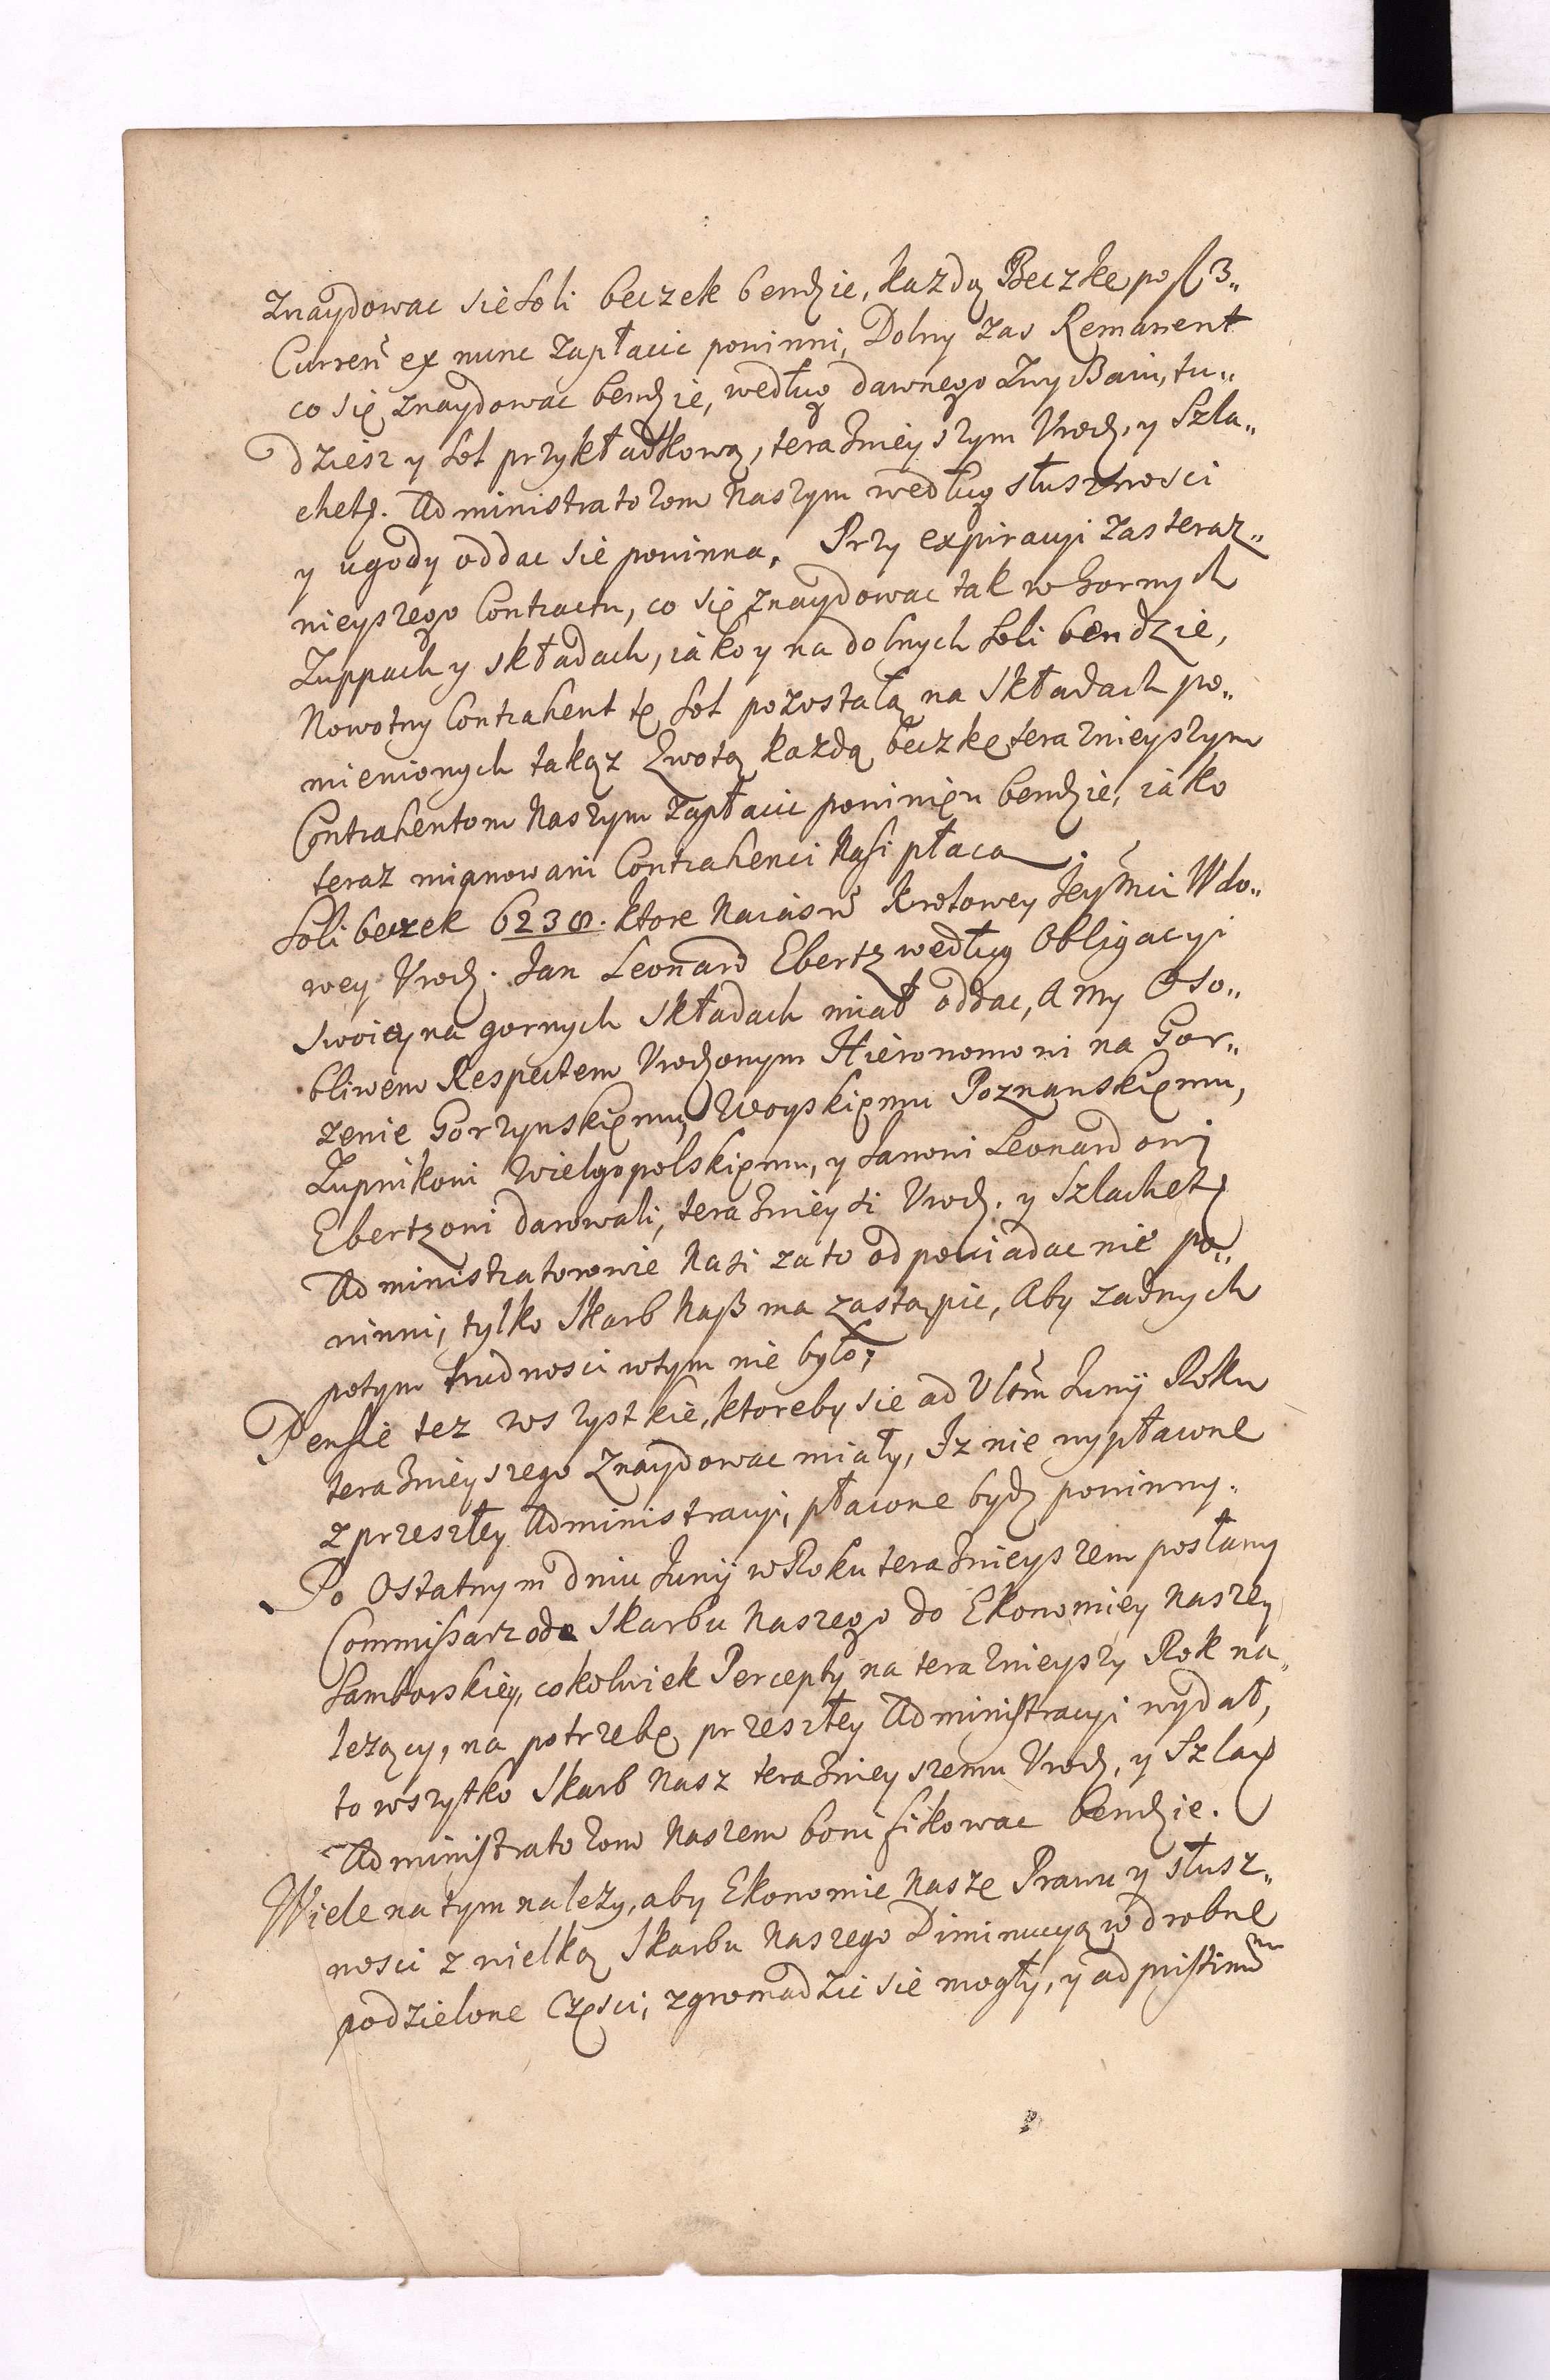 Znaydowac sie Soli beczek bendzie, kazdą Beczke po fl 3„
Curren̄ ex nunc Zapłacic powinni, Dolny zas Remanent
co się znaydowac bendzie, według dawnego Zwyczaiu, tu„
dziesz y Sol przykładkową, teraznieyszym Vrodz. y Szla„
chetz. Administratorom Naszym według słusznosci
y ugody oddac sie powinna. Przy expiracyi zas teraz„
nieyszego Contractu, co się znaydowac tak w Gornych
Zuppach y składach, iako y na dolnych Soli bendzie,
Nowotny Contrahent tę Sol pozostałą na Składach po„
mienionych takąz Qwotą kazdą beczkę teraznieyszym
Contrahentom Naszym Zapłacic powinięn bendzie, iako
teraz mianowani Contrahenci Nasi płacą.
Soli beczek 6238. ktore Naiasn̄ Krolowey Jeymci Wdo„
wey Vrodz. Jan Leonard Ebertz według Obligacyi
swoiey na gornych Składach miał oddac, A my Oso„
bliwem Respectem Vrodzonym Hieronomowi na Gor„
zenie Gorzynskięmu, Woyskięmu Poznanskięmu,
Zupnikowi Wielgopolskięmu, y Janowi Leonardowi
Ebertzowi darowali, teraznieysi Vrodz. y Szlachetz
Administratorowie Nasi za to odpowiadac nie po„
winni, tylko Skarb Nasz ma zastąpic, Aby zadnych
potym trudnosci wtym nie było;
Pensie tez wszystkie, ktoreby sie ad Vltm̄ Junij Roku
teraznieyszego Znaydowac miały, Iz nie wypłacone
z przeszłey Administracyi, płacone bydz powinny.
Po Ostatnym dniu Junij w Roku teraznieyszem posłany
Commissarz od Skarbu Naszego do Ekonomiey Naszey
Samborskiey, cokolwiek Percepty na teraznieyszy Rok na„
lezący, na potrzebę przeszłey Administracyi wydał,
to wszystko Skarb Nasz teraznieyszemu Vrodz. y Szlach
Administratorom Naszem bonifikowac bendzie.
Wiele na tym nalezy, aby Ekonomie Nasze Prawu y słusz„
nosci z wielką Skarbu Naszego Diminucyą w drobne
podzielone Częsci, zgromadzic sie mogły, y ad pristinum